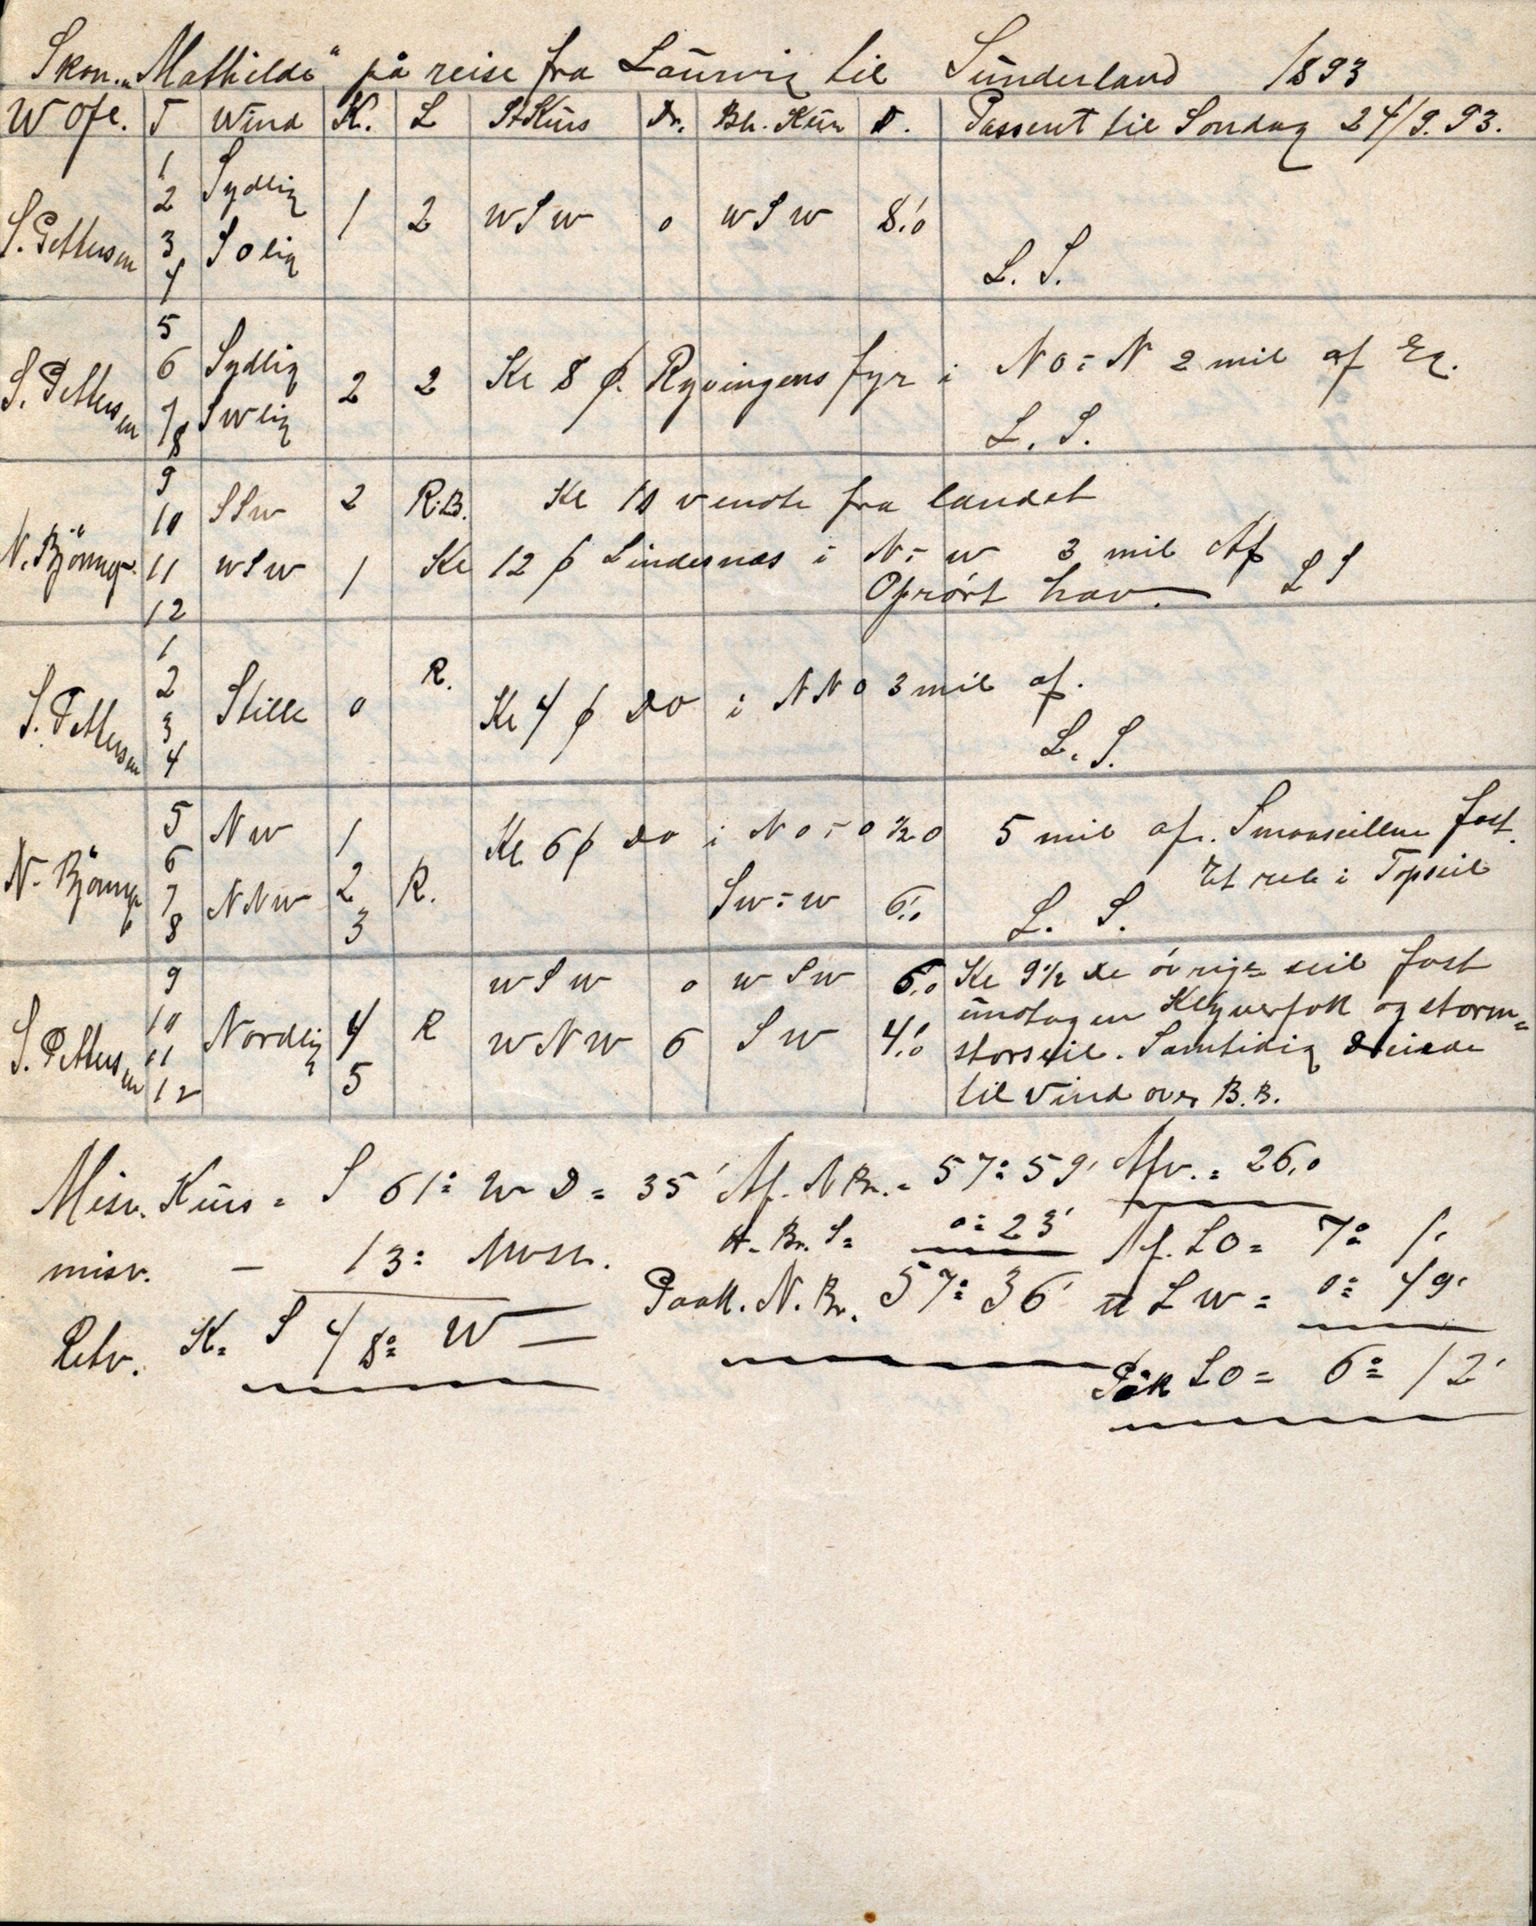 Skon. „Mathilde" på reise fra Laurvig til Sunderland 1893
W Ofc. T Wind K. L St Kurs Dr. Bh. Kur D. Passert til Søndag 24/9. 93.
1 Sydlig
S. Pettersen 2 1 2 WSW 0 WSW 8.'0
3 SOlig
4 L. S.
5
S. Pettersen 6 Sydlig 2 2 Kl 8 f. Ryvingens fyr i NO=N 2 mil af
7 SWlig
8 L. S.
9
10 SSW 2 R.B. Kl 10 vendte fra landet
11 WSW 1 Kl 12 f Lindesnæs i N=W 3 mil Af
12 Oprørt hav. L S
1
2 R.
S. Pettersen 3 Stille 0 Kl 4 f Do i NNO 3 mil af.
4 L. S.
5 NW 1 Kl 6 f Do i NO=O ½ O 5 mil af. Smaaseillene fast.
6 Et reb i Topseil
7 NNW 2 R. SW=W 6.'0
8 3 L. S.
9 WSW 0 WSW 6.'0 Kl 9½ de øvrige seil fast
10 Nordlig 4 R WNW 6 SW 4.'0 undtagen Klyverfok og storm=
S. Pettersen 11 storseil. Samtidig dreiede
12 5 til Vind over B.B.
Misv. Kurs = S 61° W D = 35' Af. N Br. = 57° 59' Afv. = 26,0
misv. — 13° Br. S = 0° 23' Af. LO = 7° 1'
Retv. K. S 48° W — Paak. N. Br. 57° 36' LW = 0° 49'
Påk LO = 6° 12'